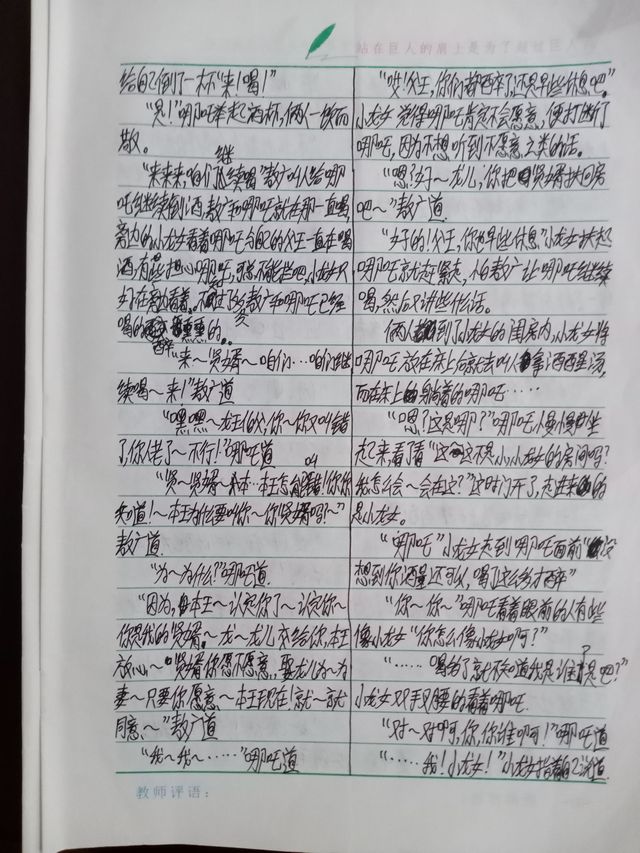 站在巨人的肩上是为了超过巨人
给自己倒了一杯“来!喝!”
“是!”哪吒举起酒杯,俩人一饮而
散。
“来来来,咱们继续喝”敖广叫人给哪
吒继续倒酒敖广和哪吒就在那一直喝
旁边的小龙女看着哪吒与自己的父王一直在喝
酒,有些担心哪吒,可是不能拦吧,小龙女只
好在旁边看着。不过飞多敖广和哪吒已经
喝的
“来~贤婿~咱们…咱们继
续喝~来!”敖广道
“嘿嘿~龙王伯父,你~你又叫错
了,你老了~不行!”哪吒道
“贤~贤婿~本…本王怎叫错!你你
知道!~本王为什么要叫你~你贤婿吗?~”
敖广道
“为~为什么?”哪吒道
“因为,本王~认定你了~认定你~
你是我的贤婿。~龙~龙儿交给你,本王
放心~贤婿你愿不愿意,娶龙儿~为
妻~只要你愿意~本王现在!就~就
同意、~”敖广道
“我~我~……”哪吒道
“哎!父王,你们都醉了,还是早些休息吧。”
小龙女觉得哪吒肯定不会愿意,便打断了
哪吒,因为不想听到不愿意之类的话。
“嗯?好~龙儿,你把贤婿扶回房
吧~”敖广道
“好的!父王,你也早些休息”小龙女扶起
哪吒就赶紧走,怕敖广让哪吒继续
喝,然后又讲些什么话。
俩人到了小龙女的闺房内,小龙女将
哪吒放在床上后就去叫人拿酒醒汤,
而在床上躺着的哪吒……
“嗯?这是哪?”哪吒慢慢坐
起来看了看“这这不是小小龙女的房间吗?
我怎么会~会在这?”这时门开了,走进来的
是小龙女。
“哪吒”小龙女走到哪吒面前“没
想到你酒量还可以,喝了这么多才醉”
“你~你~”哪吒看着眼前的人有些
像小龙女“你怎么像小龙女啊?”
“……喝多了就不知道我是谁了是吧?”
小龙女双手叉腰的看着哪吒
“对~对啊,你,你谁啊!”哪吒道
“……我!小龙女!”小龙女指着自己说道
教师评语: